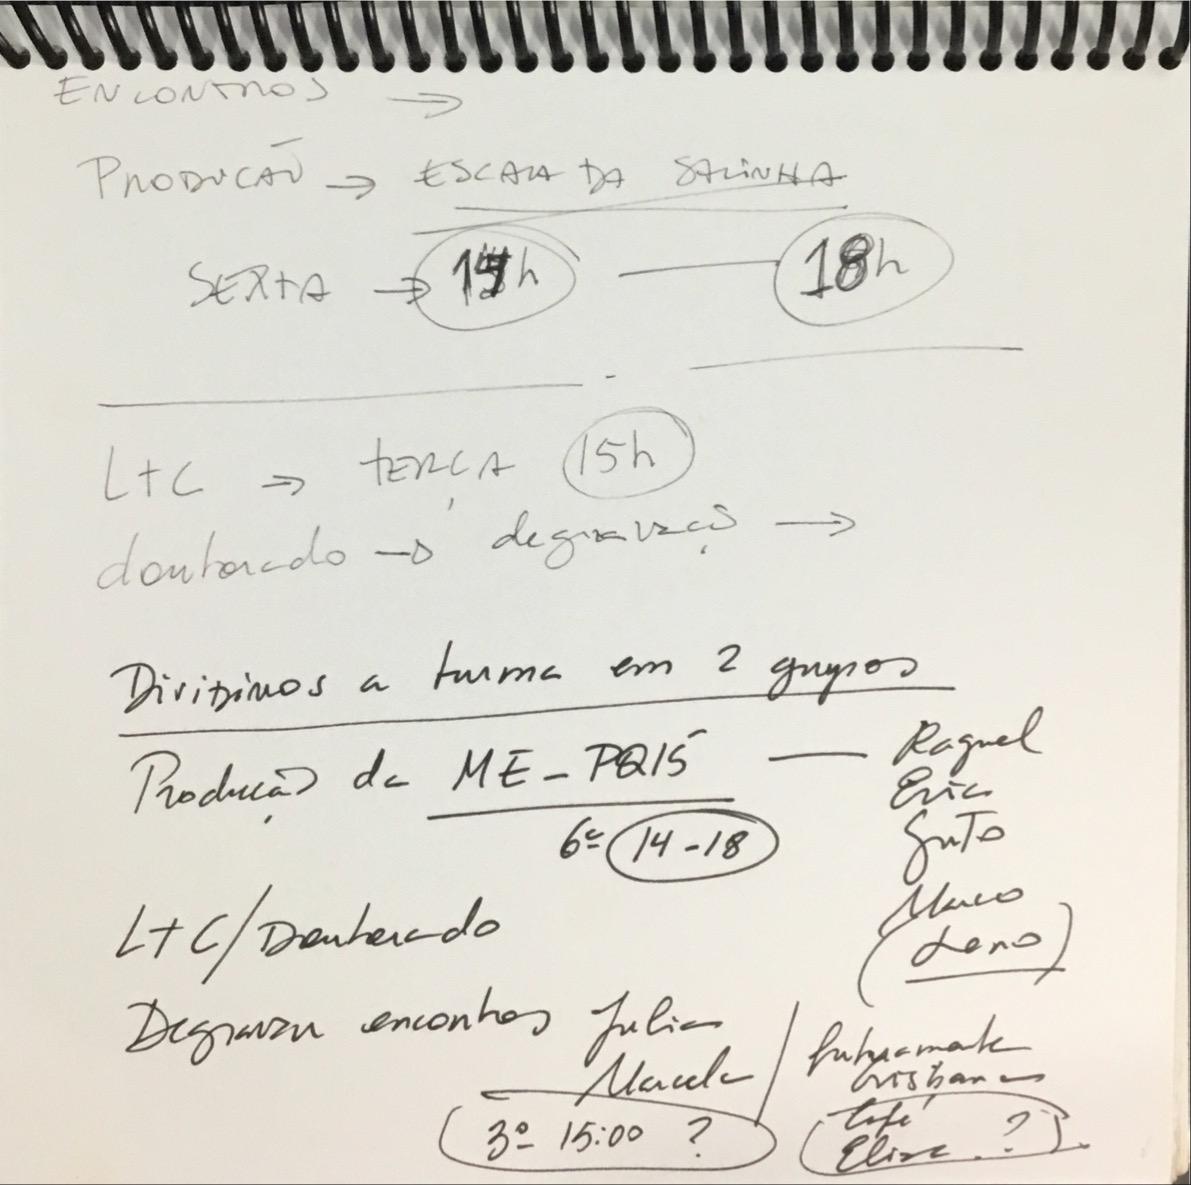 ENCONTROS →
PRODUCÃO → ESCALA DA SALINHA
SEXTA → 14h — 18h
L+C → TERÇA 15h
doutorado → degravaçõ →
Dividimos a turma em 2 grupos
Produção da ME-PQ15 — Raquel
Erica
6ª 14-18 Guto
Marco
L+C/Doutorado (Leno)
Degravar encontros Julia
Marcela
futuramente
Cristiana
3ª 15:00 ?
Elisa ?